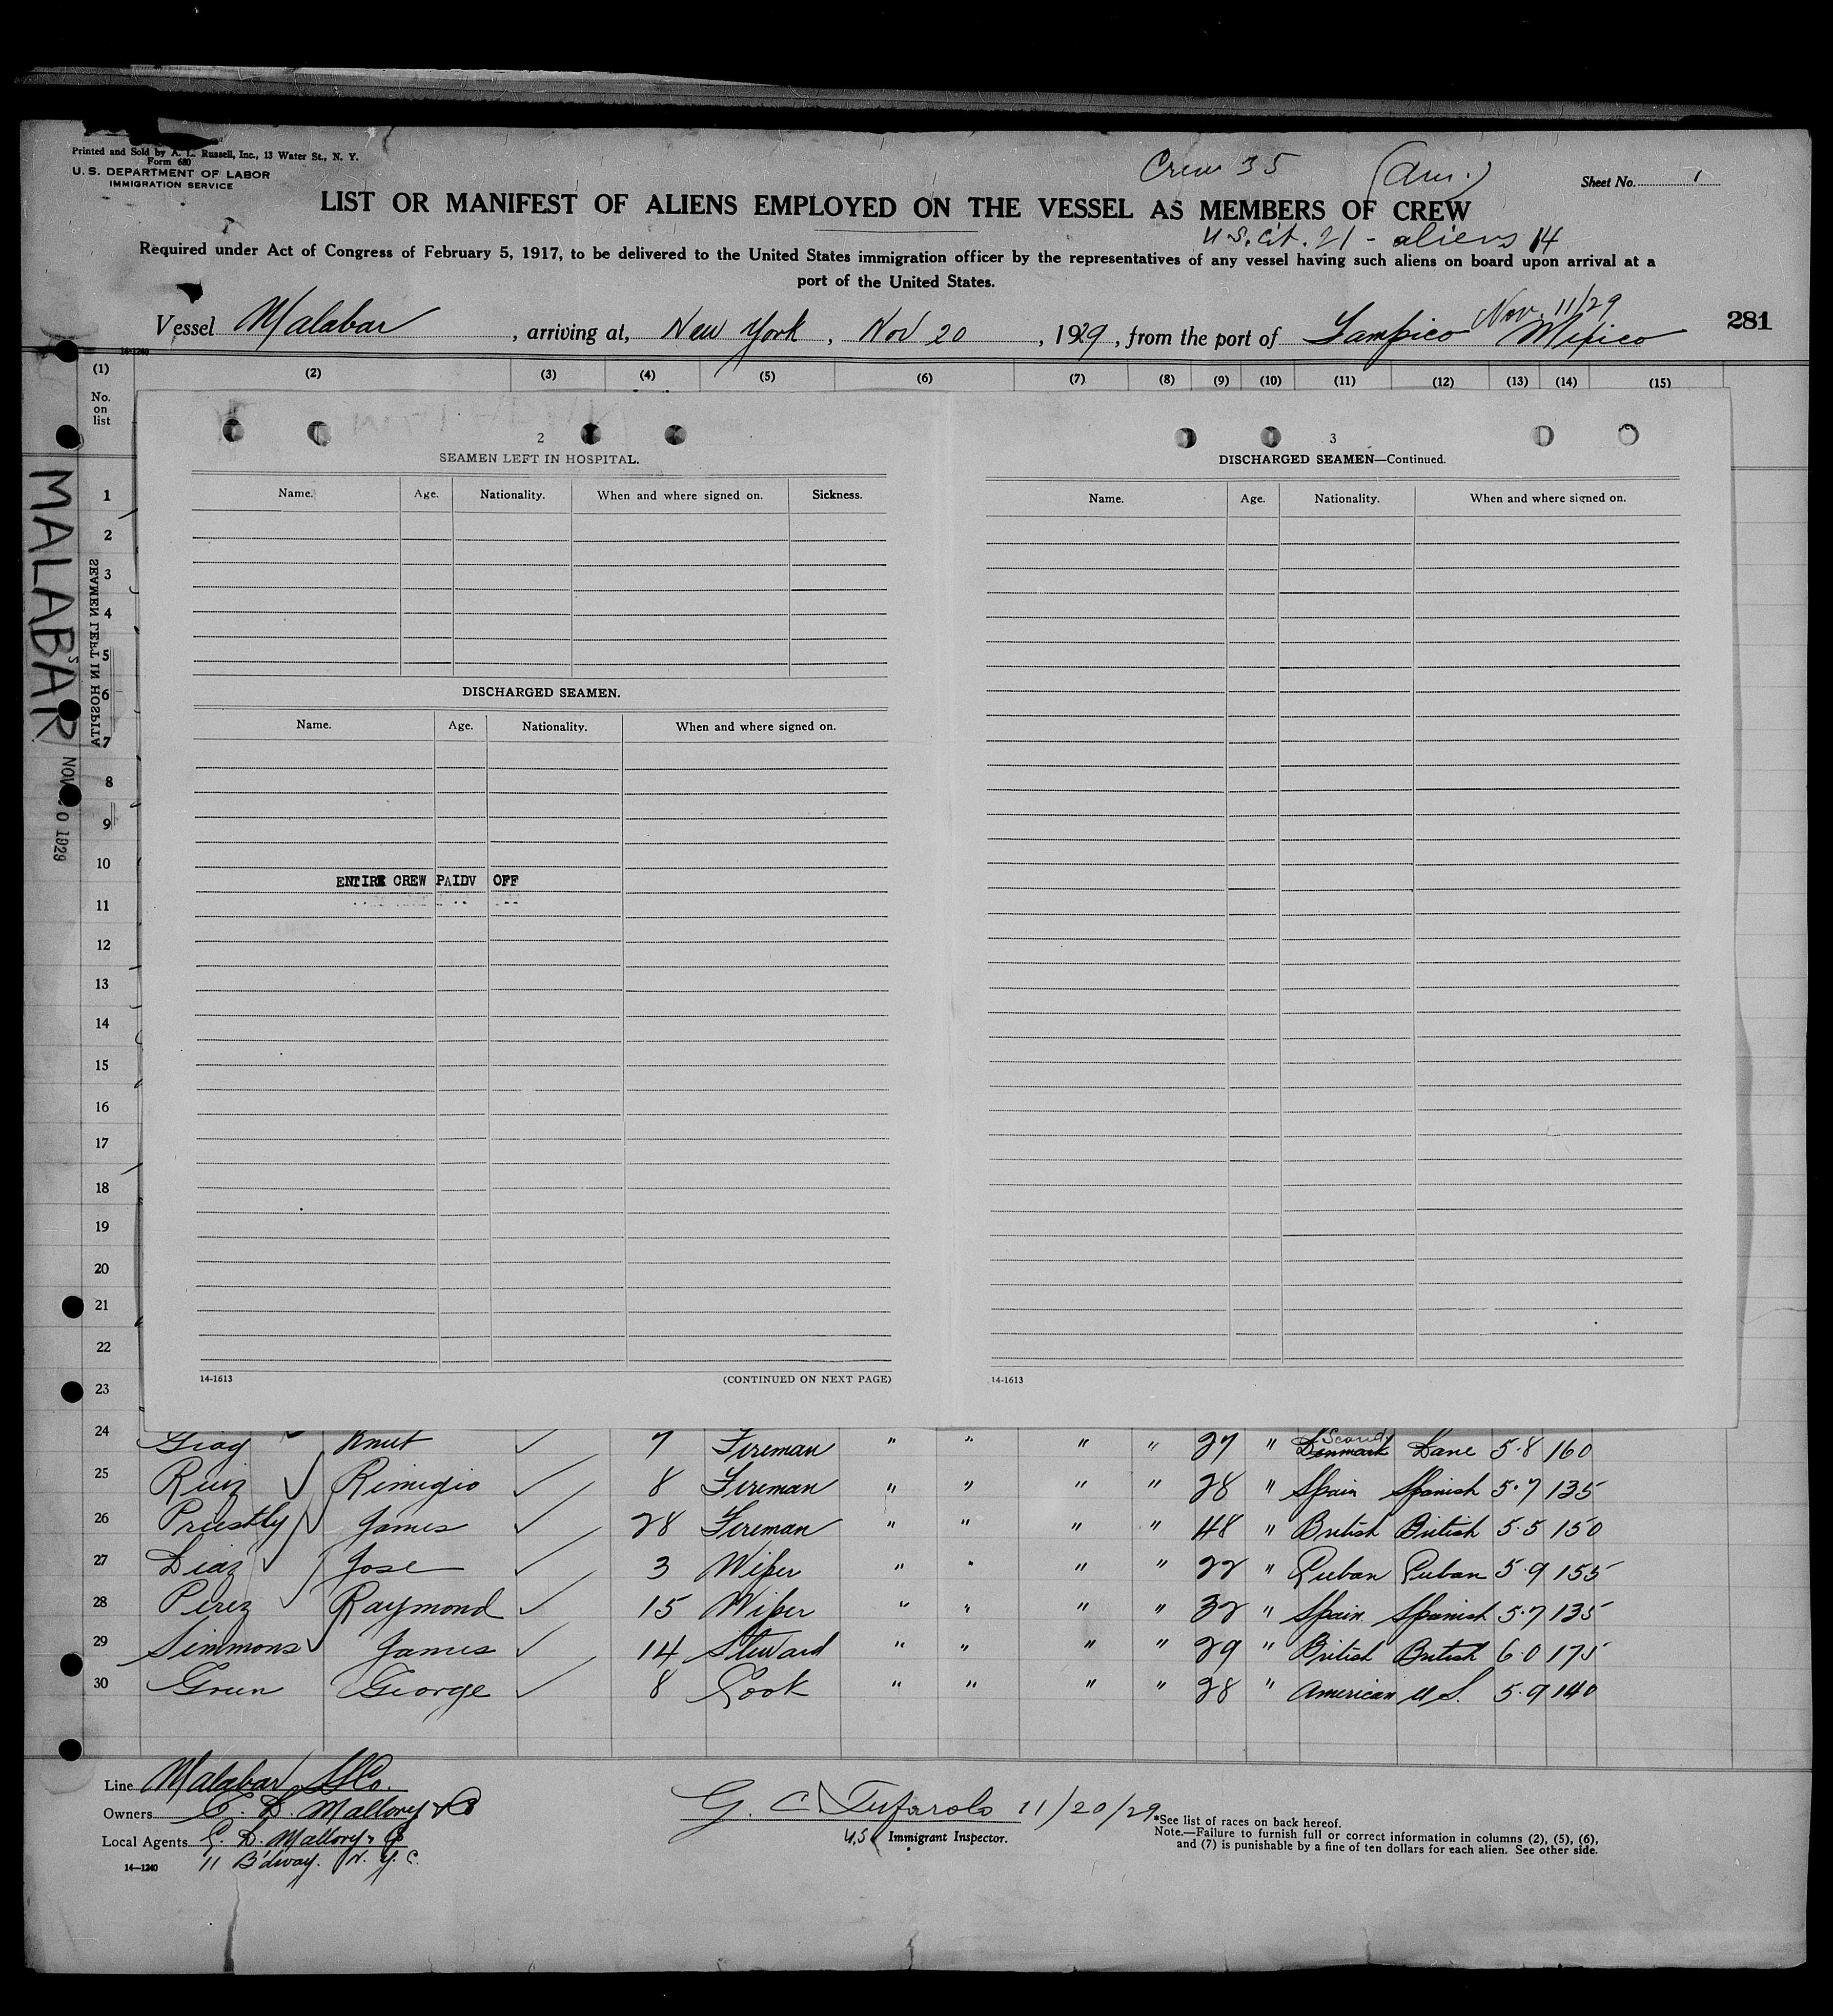 Printed and Sold by A. L. Russell, Inc., 13 Water St., N. Y.
Form 680
U. S. DEPARTMENT OF LABOR
IMMIGRATION SERVICE
Crew 35 (Am.)
Sheet No. 1
LIST OR MANIFEST OF ALIENS EMPLOYED ON THE VESSEL AS MEMBERS OF CREW
U.S. Cit. 21 - aliens 14
Required under Act of Congress of February 5, 1917, to be delivered to the United States immigration officer by the representatives of any vessel having such aliens on board upon arrival at a
port of the United States.
Nov. 11/29
Vessel Malabar, arriving at, New York, Nov 20, 1929, from the port of Tampico Mexico
281
14-1240
(1) (2) (3) (4) (5) (6) (7) (8) (9) (10) (11) (12) (13) (14) (15)
No.
on
list
MALABAR
SEAMEN LEFT IN HOSPITA
1929
1
2
3
4
5
6
7
8
9
10
11
12
13
14
15
16
17
18
19
20
21
22
23
2
SEAMEN LEFT IN HOSPITAL.
Name. Age. Nationality. When and where signed on. Sickness.
DISCHARGED SEAMEN.
Name. Age. Nationality. When and where signed on.
ENTIRE CREW PAIDV OFF
14-1613 (CONTINUED ON NEXT PAGE)
3
DISCHARGED SEAMEN—Continued.
Name. Age. Nationality. When and where signed on.
14-1613
24 Knut 7 Fireman " " " " 27 " Denmark Scand Dane 5.8 160
25 Ruiz Rimigio 8 Fireman " " " " 28 " Spain Spanish 5.7 135
26 Priestly James 28 Fireman " " " " 48 " British British 5.5 150
27 Diaz Jose 3 Wiper " " " " 22 " Cuban Cuban 5.9 155
28 Perez Raymond 15 Wiper " " " " 32 " Spain Spanish 5.7 135
29 Simmons James 14 Steward " " " " 29 " British British 6.0 175
30 Green George 8 Cook " " " " 28 " American U S. 5.9 140
Line Malabar SS Co.
Owners C. D. Mallory & Co
Local Agents C. D. Mallory & Co
11 B'dway. N. Y. C.
14—1240
G. C. Tufarolo 11/20/29
U.S. Immigrant Inspector.
*See list of races on back hereof.
Note.—Failure to furnish full or correct information in columns (2), (5), (6),
and (7) is punishable by a fine of ten dollars for each alien. See other side.